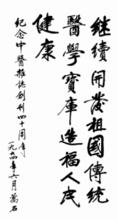 继续开发祖國傳统
醫學寶库造福人民
健康
纪念中醫雜誌创刊四十周年
一九九四年六月 萬石